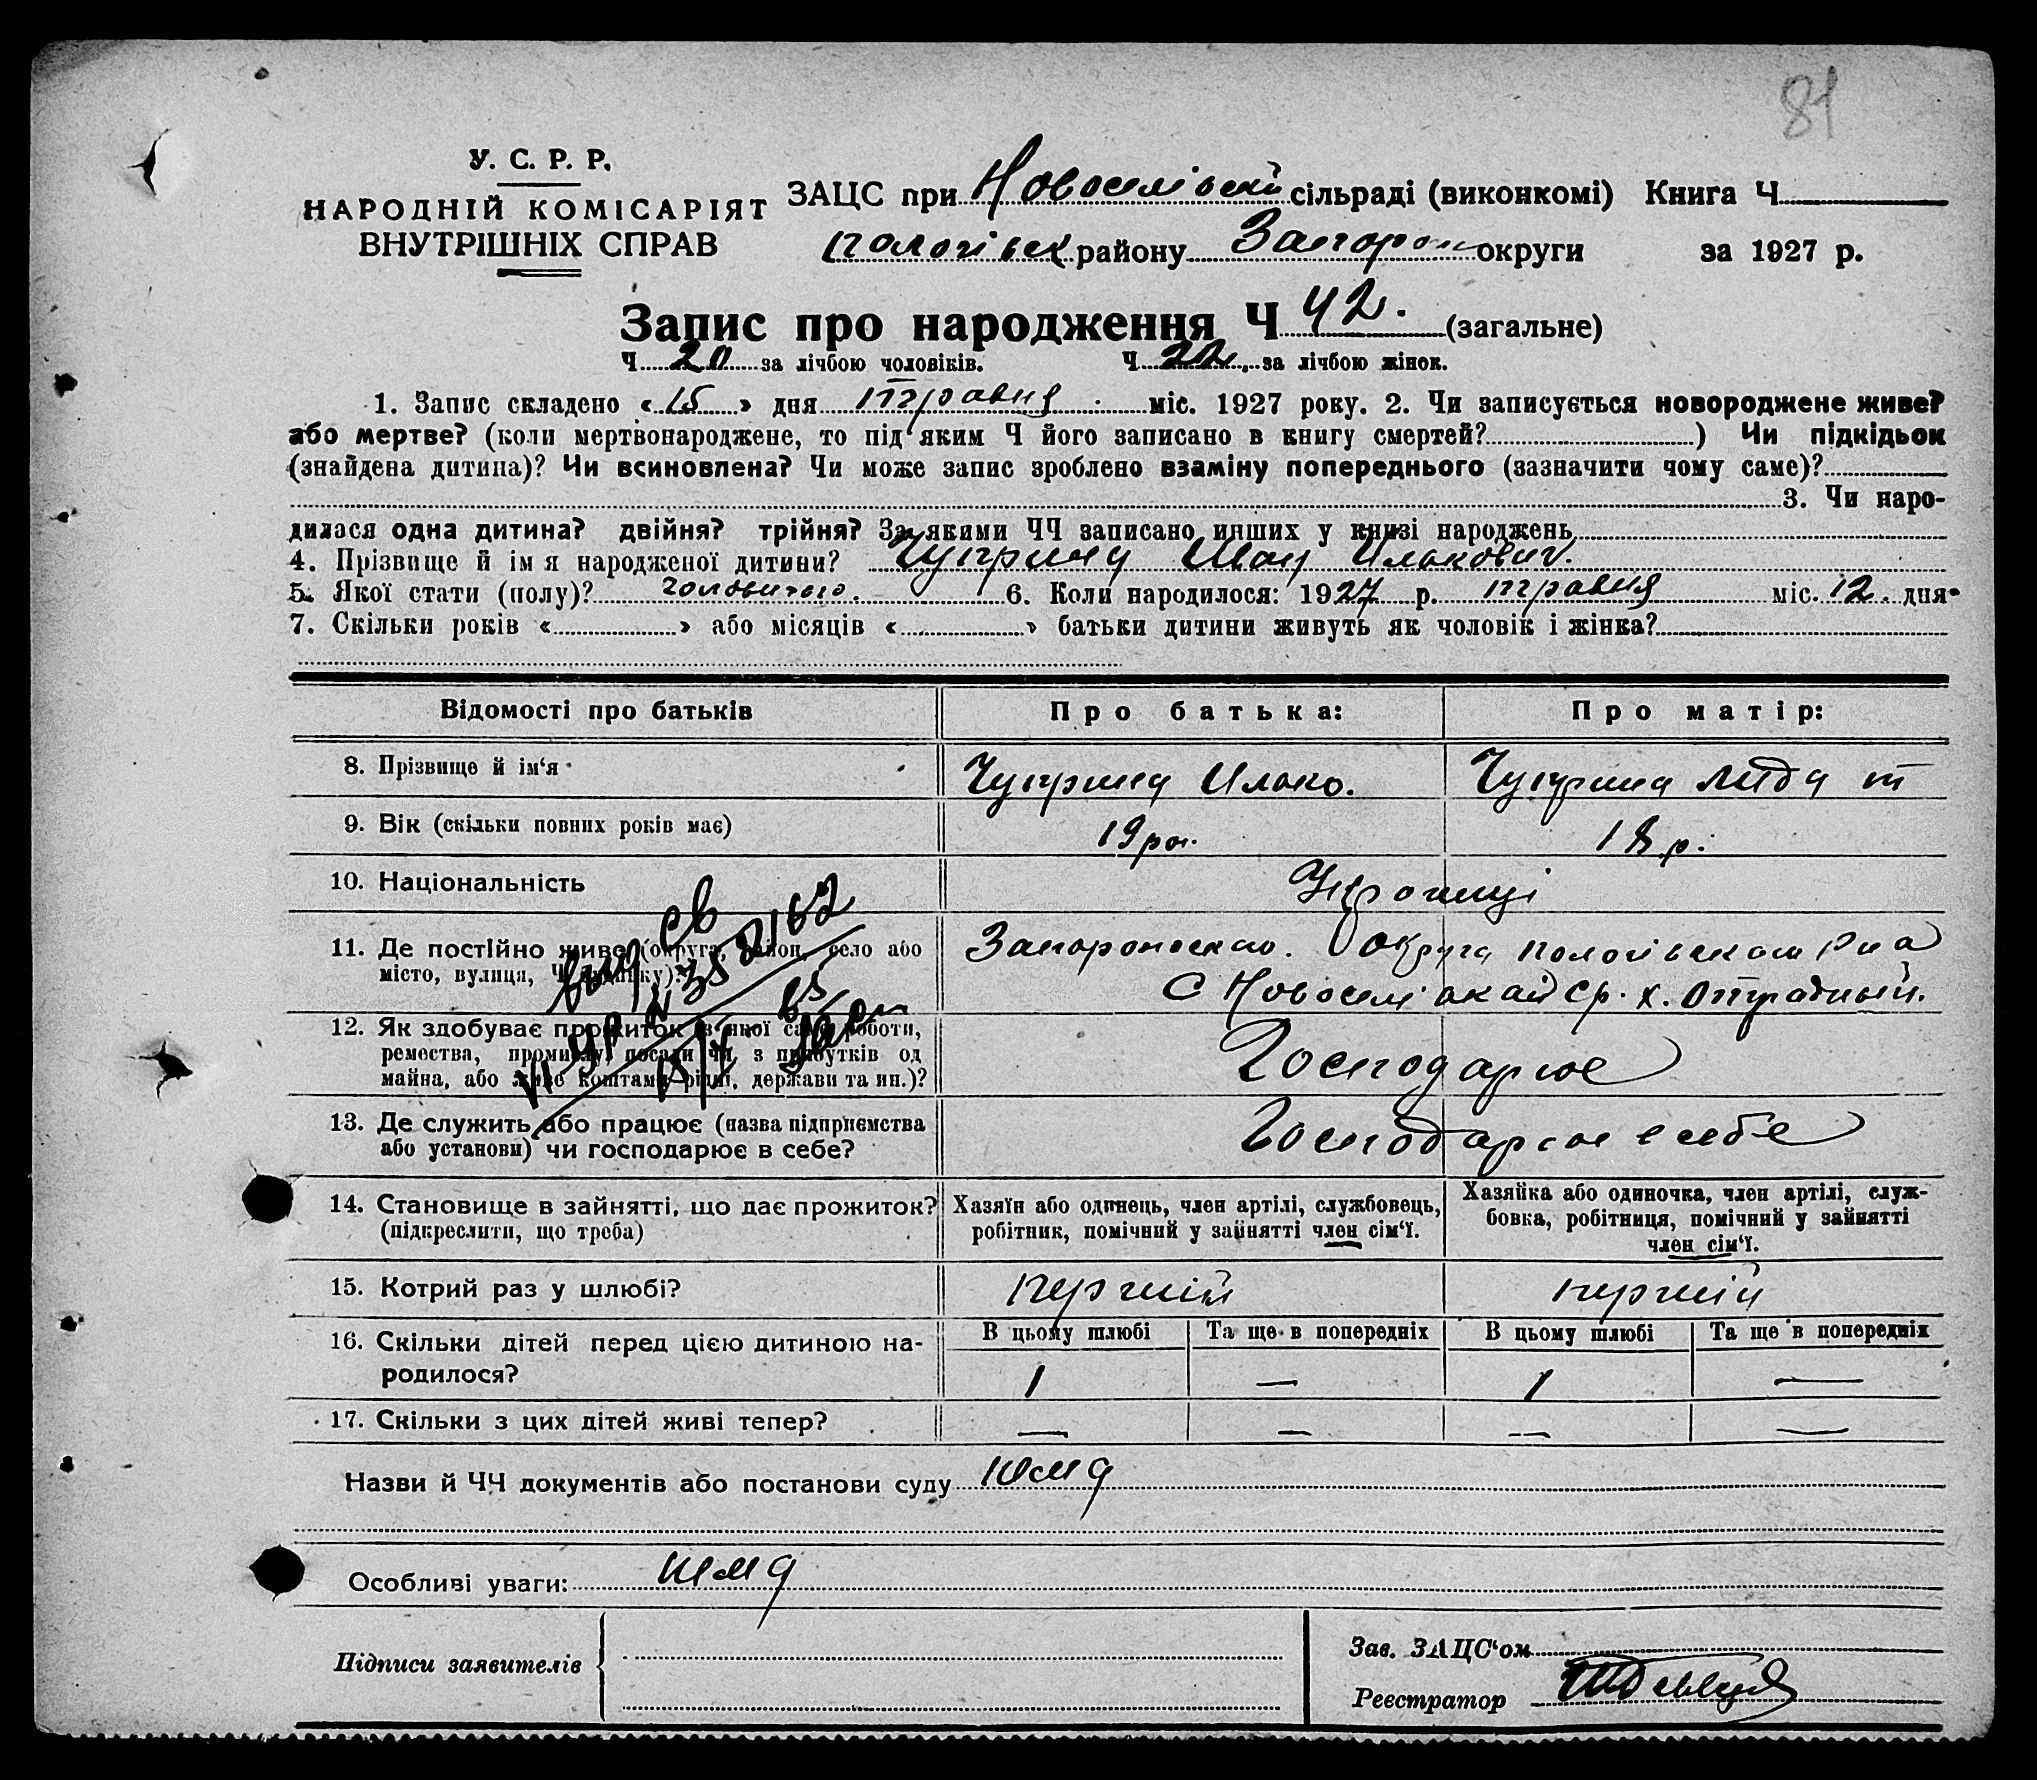 81
У. С. Р. Р.
НАРОДНІЙ КОМІСАРІЯТ
ВНУТРІШНІХ СПРАВ
ЗАЦС при Новоселівскій сільраді (виконкомі) Книга Ч
пологівск району Запорож округи за 1927 р.
Запис про народження Ч 42. (загальне)
Ч 20 за лічбою чоловіків. Ч 22. за лічбою жінок.
1. Запис складено «15» дня травня міс. 1927 року. 2. Чи записується новороджене живе?
або мертве? (коли мертвонароджене, то під яким Ч його записано в книгу смертей? ) Чи підкідьок
(знайдена дитина)? Чи всиновлена? Чи може запис зроблено взаміну попереднього (зазначити чому саме)?
3. Чи наро-
дилася одна дитина? двійня? трійня? За якими ЧЧ записано инших у книзі народжень
4. Прізвище й ім я народженої дитини? Чуприна Иван Илькович.
5. Якої стати (полу)? 6. Коли народилося: 1927 р. травня міс. 12. дня
7. Скільки років « » або місяців « » батьки дитини живуть як чоловік і жінка?
Відомості про батьків Про батька: Про матір:
8. Прізвище й ім‘я Чуприна Илько. Чуприна Лида
9. Вік (скільки повних років має) 19 18 р.
10. Національність Українці
11. Де постійно живе (округа, район, село або
місто, вулиця, Ч будинку)? Округа
С х. Отрадный.
12. Як здобуває прожиток (з якої саме роботи,
ремества, промислу, посади чи з прибутків од
майна, або живе коштами рідні, держави та ин.)? Господарює
13. Де служить або працює (назва підприємства
або установи) чи господарює в себе? Господарює в себе
14. Становище в зайнятті, що дає прожиток?
(підкреслити, що треба)
Хазяїн або одинець, член артілі, службовець,
робітник, помічний у зайнятті член сім‘ї.
Хазяйка або одиночка, член артілі, служ-
бовка, робітниця, помічний у зайнятті
член сім‘ї.
15. Котрий раз у шлюбі? перший перший
16. Скільки дітей перед цією дитиною на-
родилося?
В цьому шлюбі Та ще в попередніх В цьому шлюбі Та ще в попередніх
1 — 1 —
17. Скільки з цих дітей живі тепер? — — — —
Назви й ЧЧ документів або постанови суду
Особливі уваги:
Підписи заявителів
Зав. ЗАЦС‘ом
Реєстратор